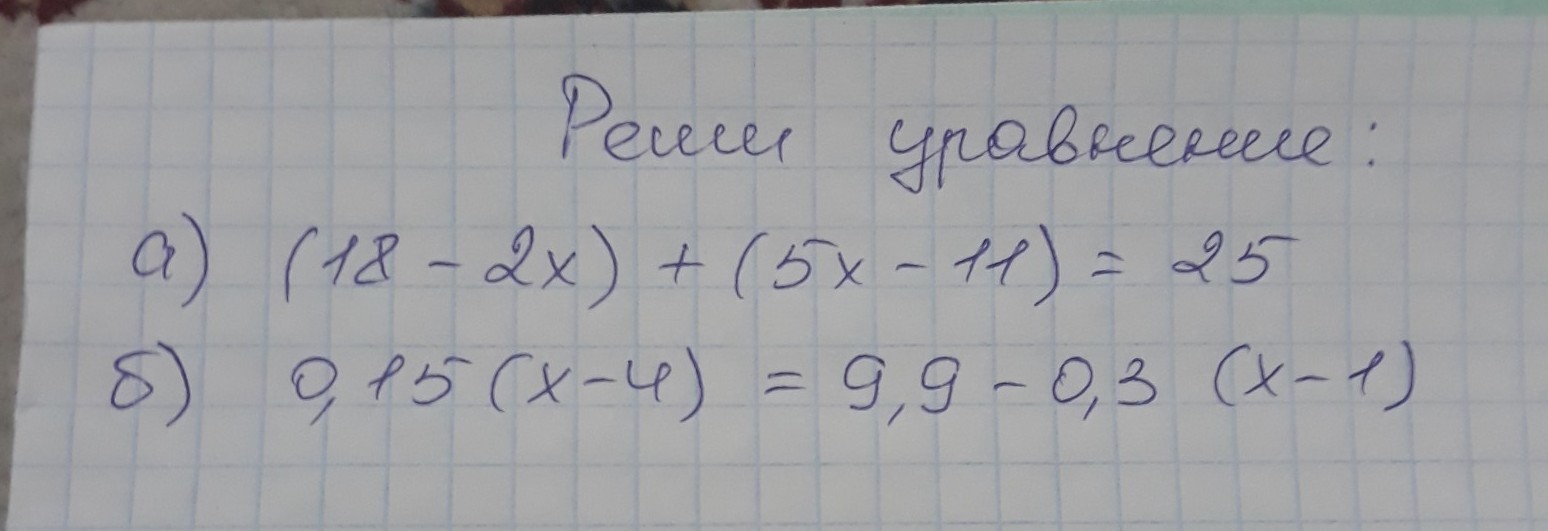 Реши уравнение:
а) (18 - 2x) + (5x - 11) = 25
б) 0,15 (x-4) = 9,9 - 0,3 (x-1)